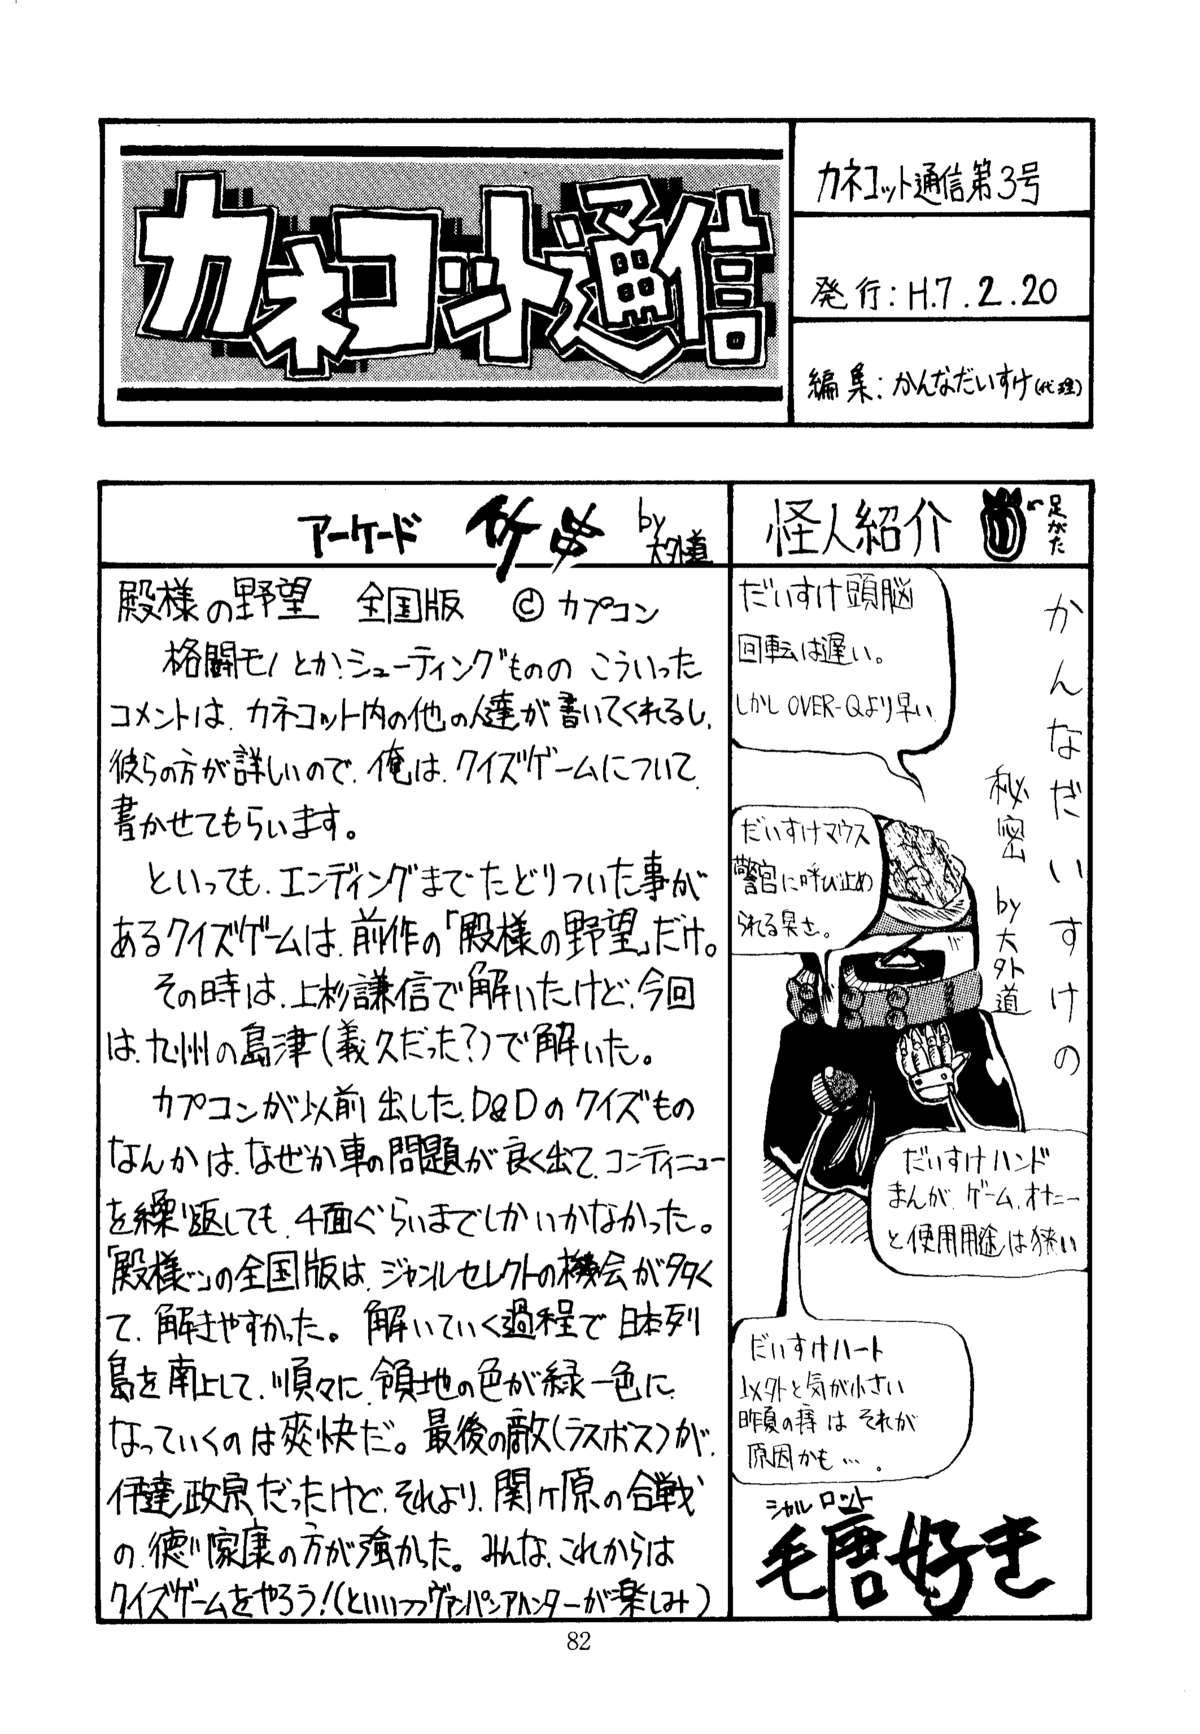 カネコット通信
カネコット通信第3号
発行:H.7.2.20
編集:かんなだいすけ(代理)
アーケード 竹串 by大外道
殿様の野望 全国版 ©カプコン
格闘モノとか、シューティングものの こういった
コメントは、カネコット内の他の人達が書いてくれるし、
彼らの方が詳しいので、俺は、クイズゲームについて
書かせてもらいます。
といっても、エンディングまでたどりついた事が
あるクイズゲームは、前作の「殿様の野望」だけ。
その時は、上杉謙信で解いたけど、今回
は、九州の島津(義久だった?)で解いた。
カプコンが以前出した、D&Dのクイズもの
なんかは、なぜか車の問題が良く出て、コンティニュー
を繰り返しても、4面ぐらいまでしかいかなかった。
「殿様…」の全国版は、ジャンルセレクトの機会が多く
て、解きやすかった。解いていく過程で日本列
島を南上して、順々に、領地の色が緑一色に
なっていくのは爽快だ。最後の敵(ラスボス)が、
伊達政宗、だったけど、それより、関ヶ原の合戦
の、徳川家康の方が強かった。みんな、これからは
クイズゲームをやろう!(といいつつヴァンパイアハンターが楽しみ)
怪人紹介
足がた
かんなだいすけの
秘密 by大外道
だいすけ頭脳
回転は遅い。
しかしOVER-Qより早い
だいすけマウス
警官に呼び止め
られる臭さ。
だいすけハンド
まんが、ゲーム、オナニー
と使用用途は狭い
だいすけハート
以外と気が小さい
昨夏の痔はそれが
原因かも…。
シャルロット
毛唐好き
82